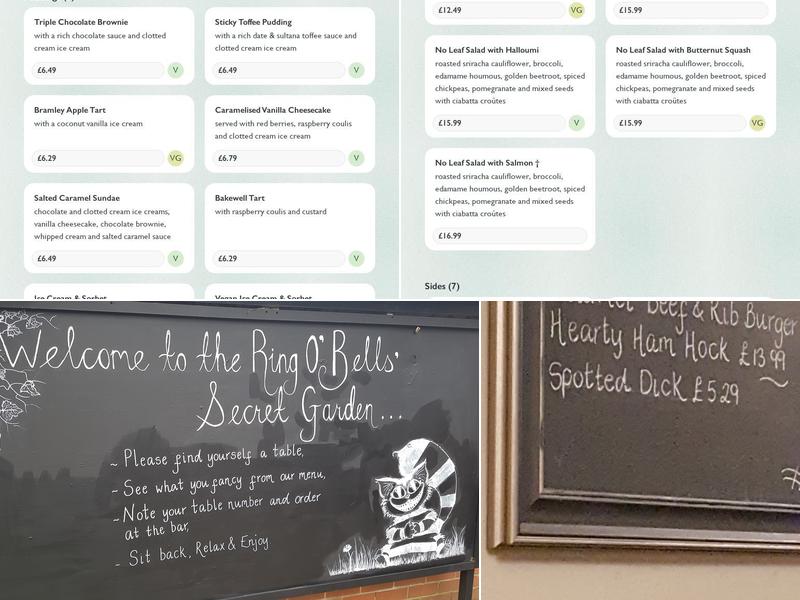 Triple Chocolate Brownie
with a rich chocolate sauce and clotted
cream ice cream
£6.49
V
Sticky Toffee Pudding
with a rich date & sultana toffee sauce and
clotted cream ice cream
£6.49
V
Bramley Apple Tart
with a coconut vanilla ice cream
£6.29
VG
Caramelised Vanilla Cheesecake
served with red berries, raspberry coulis
and clotted cream ice cream
£6.79
V
Salted Caramel Sundae
chocolate and clotted cream ice creams,
vanilla cheesecake, chocolate brownie,
whipped cream and salted caramel sauce
£6.49
V
Bakewell Tart
with raspberry coulis and custard
£6.29
V
Ice Cream & Sorbet
Vegan Ice Cream & Sorbet
£12.49
VG
£15.99
No Leaf Salad with Halloumi
roasted sriracha cauliflower, broccoli,
edamame houmous, golden beetroot, spiced
chickpeas, pomegranate and mixed seeds
with ciabatta croûtes
£15.99
V
No Leaf Salad with Butternut Squash
roasted sriracha cauliflower, broccoli,
edamame houmous, golden beetroot, spiced
chickpeas, pomegranate and mixed seeds
with ciabatta croûtes
£15.99
VG
No Leaf Salad with Salmon †
roasted sriracha cauliflower, broccoli,
edamame houmous, golden beetroot, spiced
chickpeas, pomegranate and mixed seeds
with ciabatta croûtes
£16.99
Sides (7)
Welcome to the Ring O'Bells'
Secret Garden...
~ Please find yourself a table,
~ See what you fancy from our menu,
~ Note your table number and order
at the bar,
~ Sit back, Relax & Enjoy
Beef & Rib Burger
Hearty Ham Hock £13.99
Spotted Dick £5.29